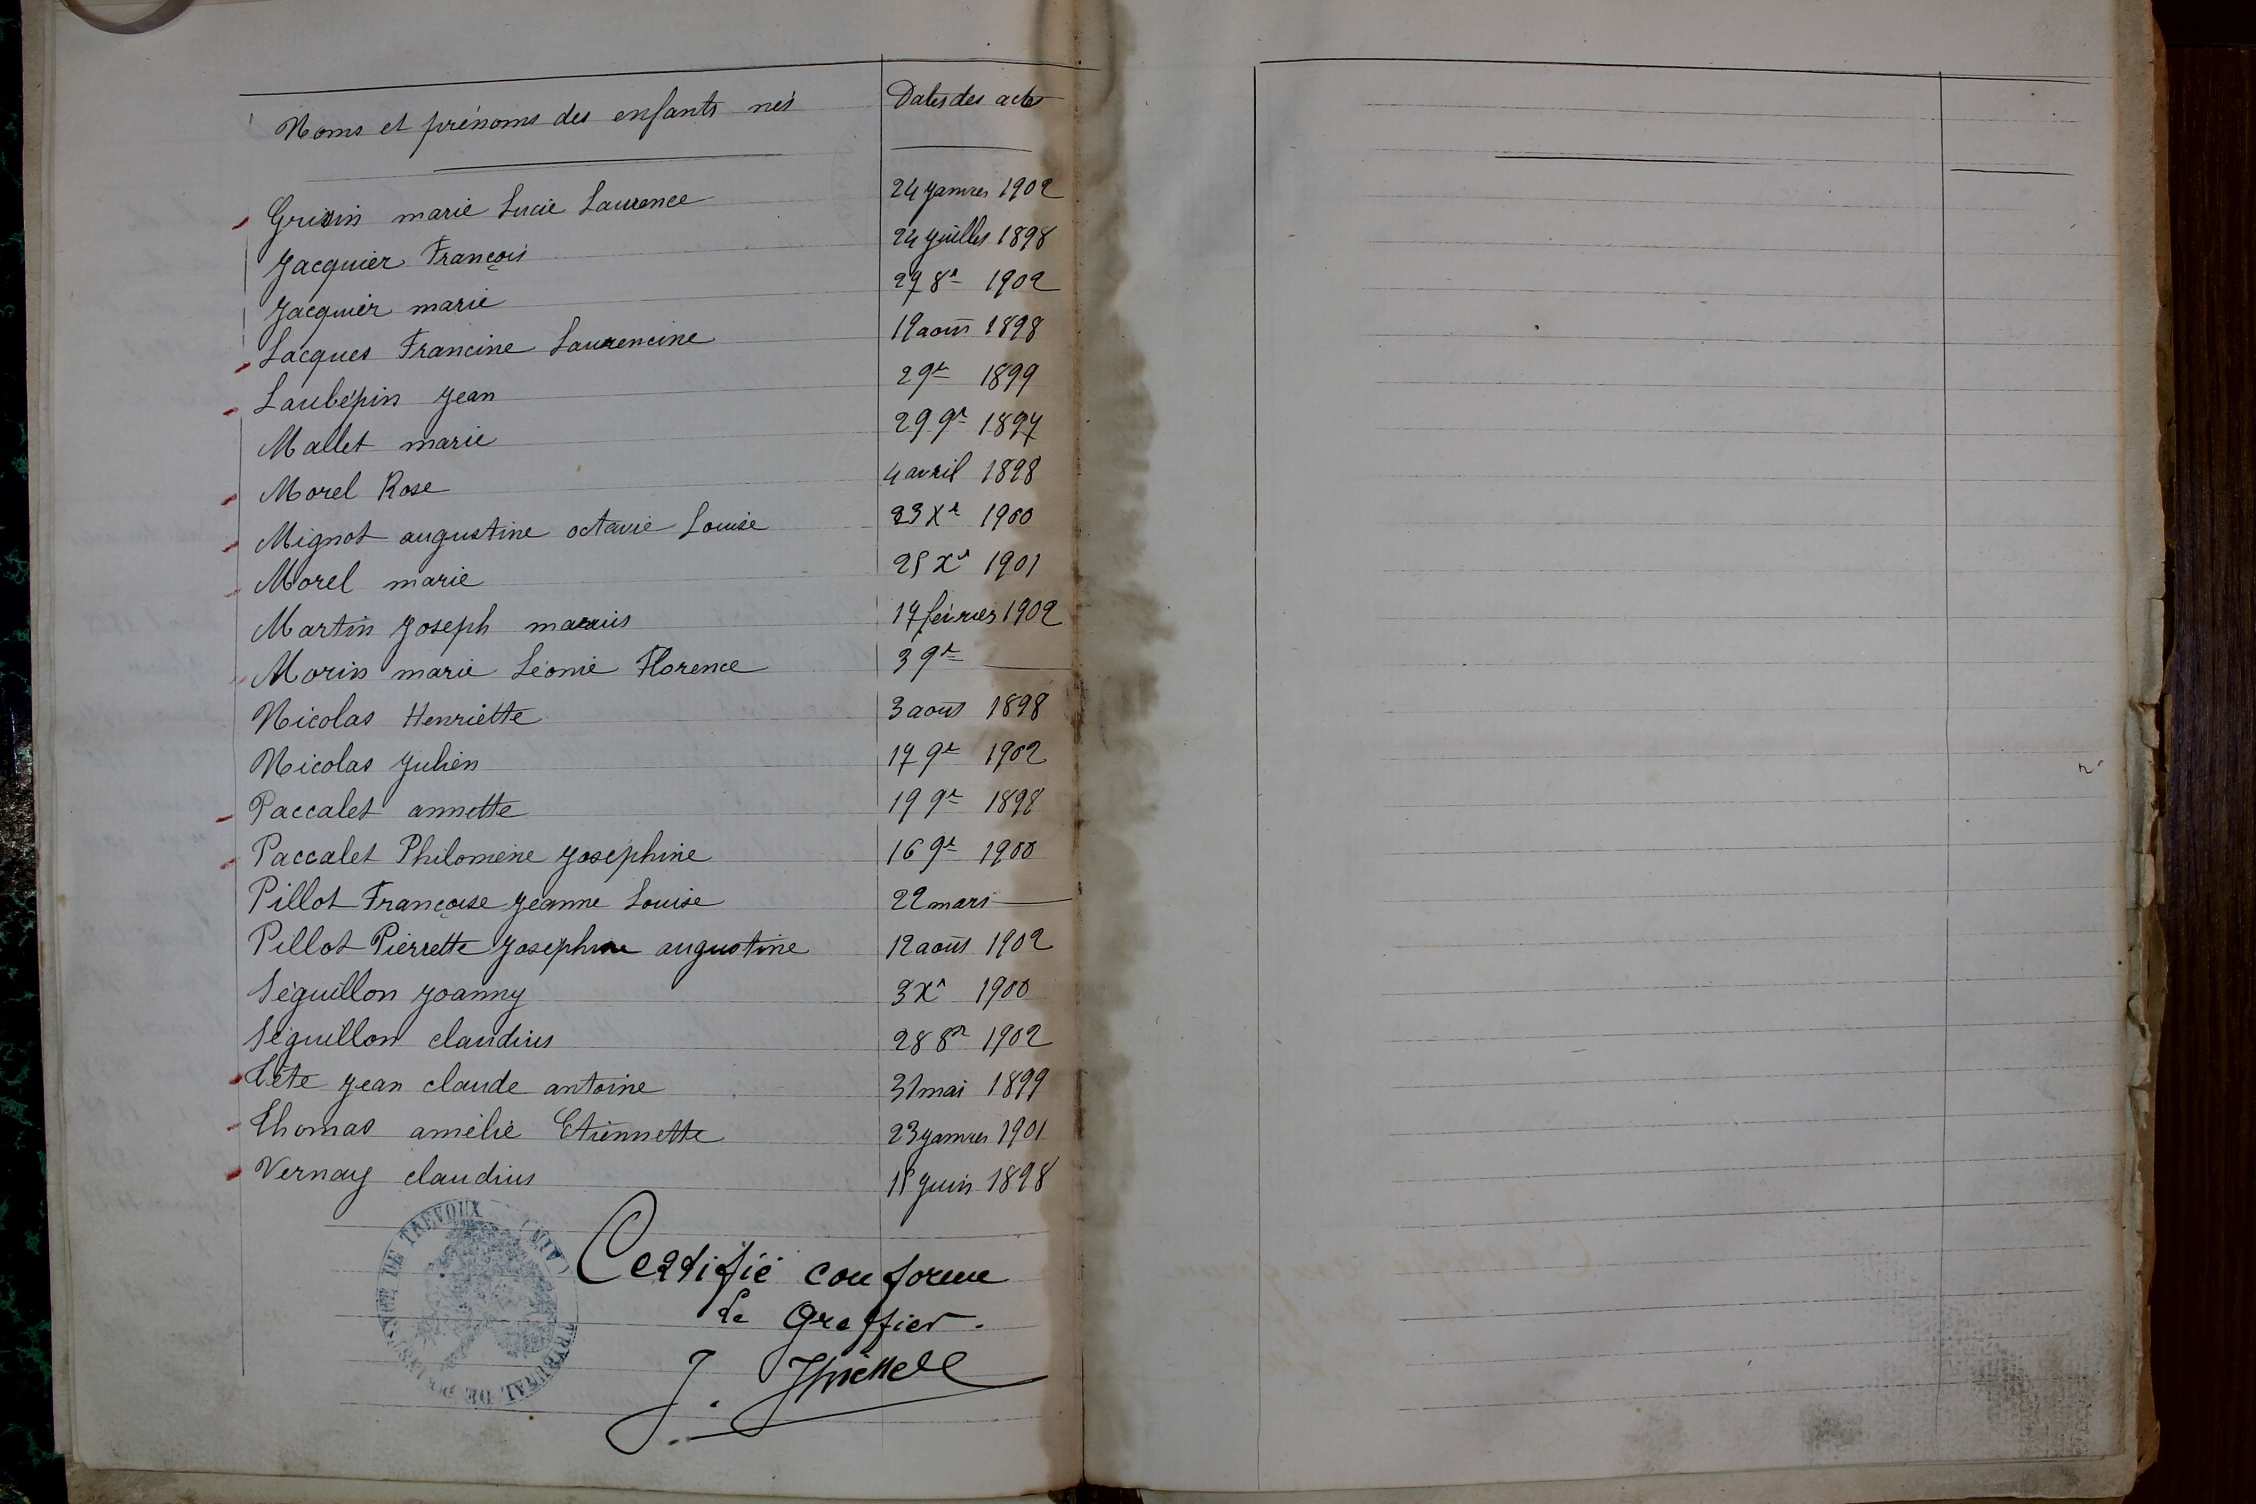 Noms et prénoms des enfants nés Dates des actes
Grisin marie Lucie Laurence 24 janvier 1902
Jacquier François 24 juillet 1898
Jacquier marie 27 8r 1902
Lacques Francine Laurencine 19 août 1898
Laubépin Jean 2 9r 1899
Mallet marie 29 9r 1897
Morel Rose 4 avril 1898
Mignot augustine octavie Louise 23 Xr 1900
Morel marie 25 Xr 1901
Martin Joseph marius 17 février 1902
Morin marie Léonie Florence 3 9r —
Nicolas Henriette 3 août 1898
Nicolas Julien 17 9r 1902
Paccalet annette 19 9r 1898
Paccalet Philomène Joséphine 16 9r 1900
Pillot Françoise Jeanne Louise 22 mars —
Pillot Pierrette Josephine augustine 12 août 1902
Séguillon Joanny 3 Xr 1900
Séguillon claudius 28 8r 1902
Tête Jean claude antoine 31 mai 1899
Thomas amélie Etiennette 23 janvier 1901
Vernay claudius 15 juin 1898
TRIBUNAL DE 1ÈRE INSTANCE DE TREVOUX (AIN)
Certifié conforme
Le Greffier.